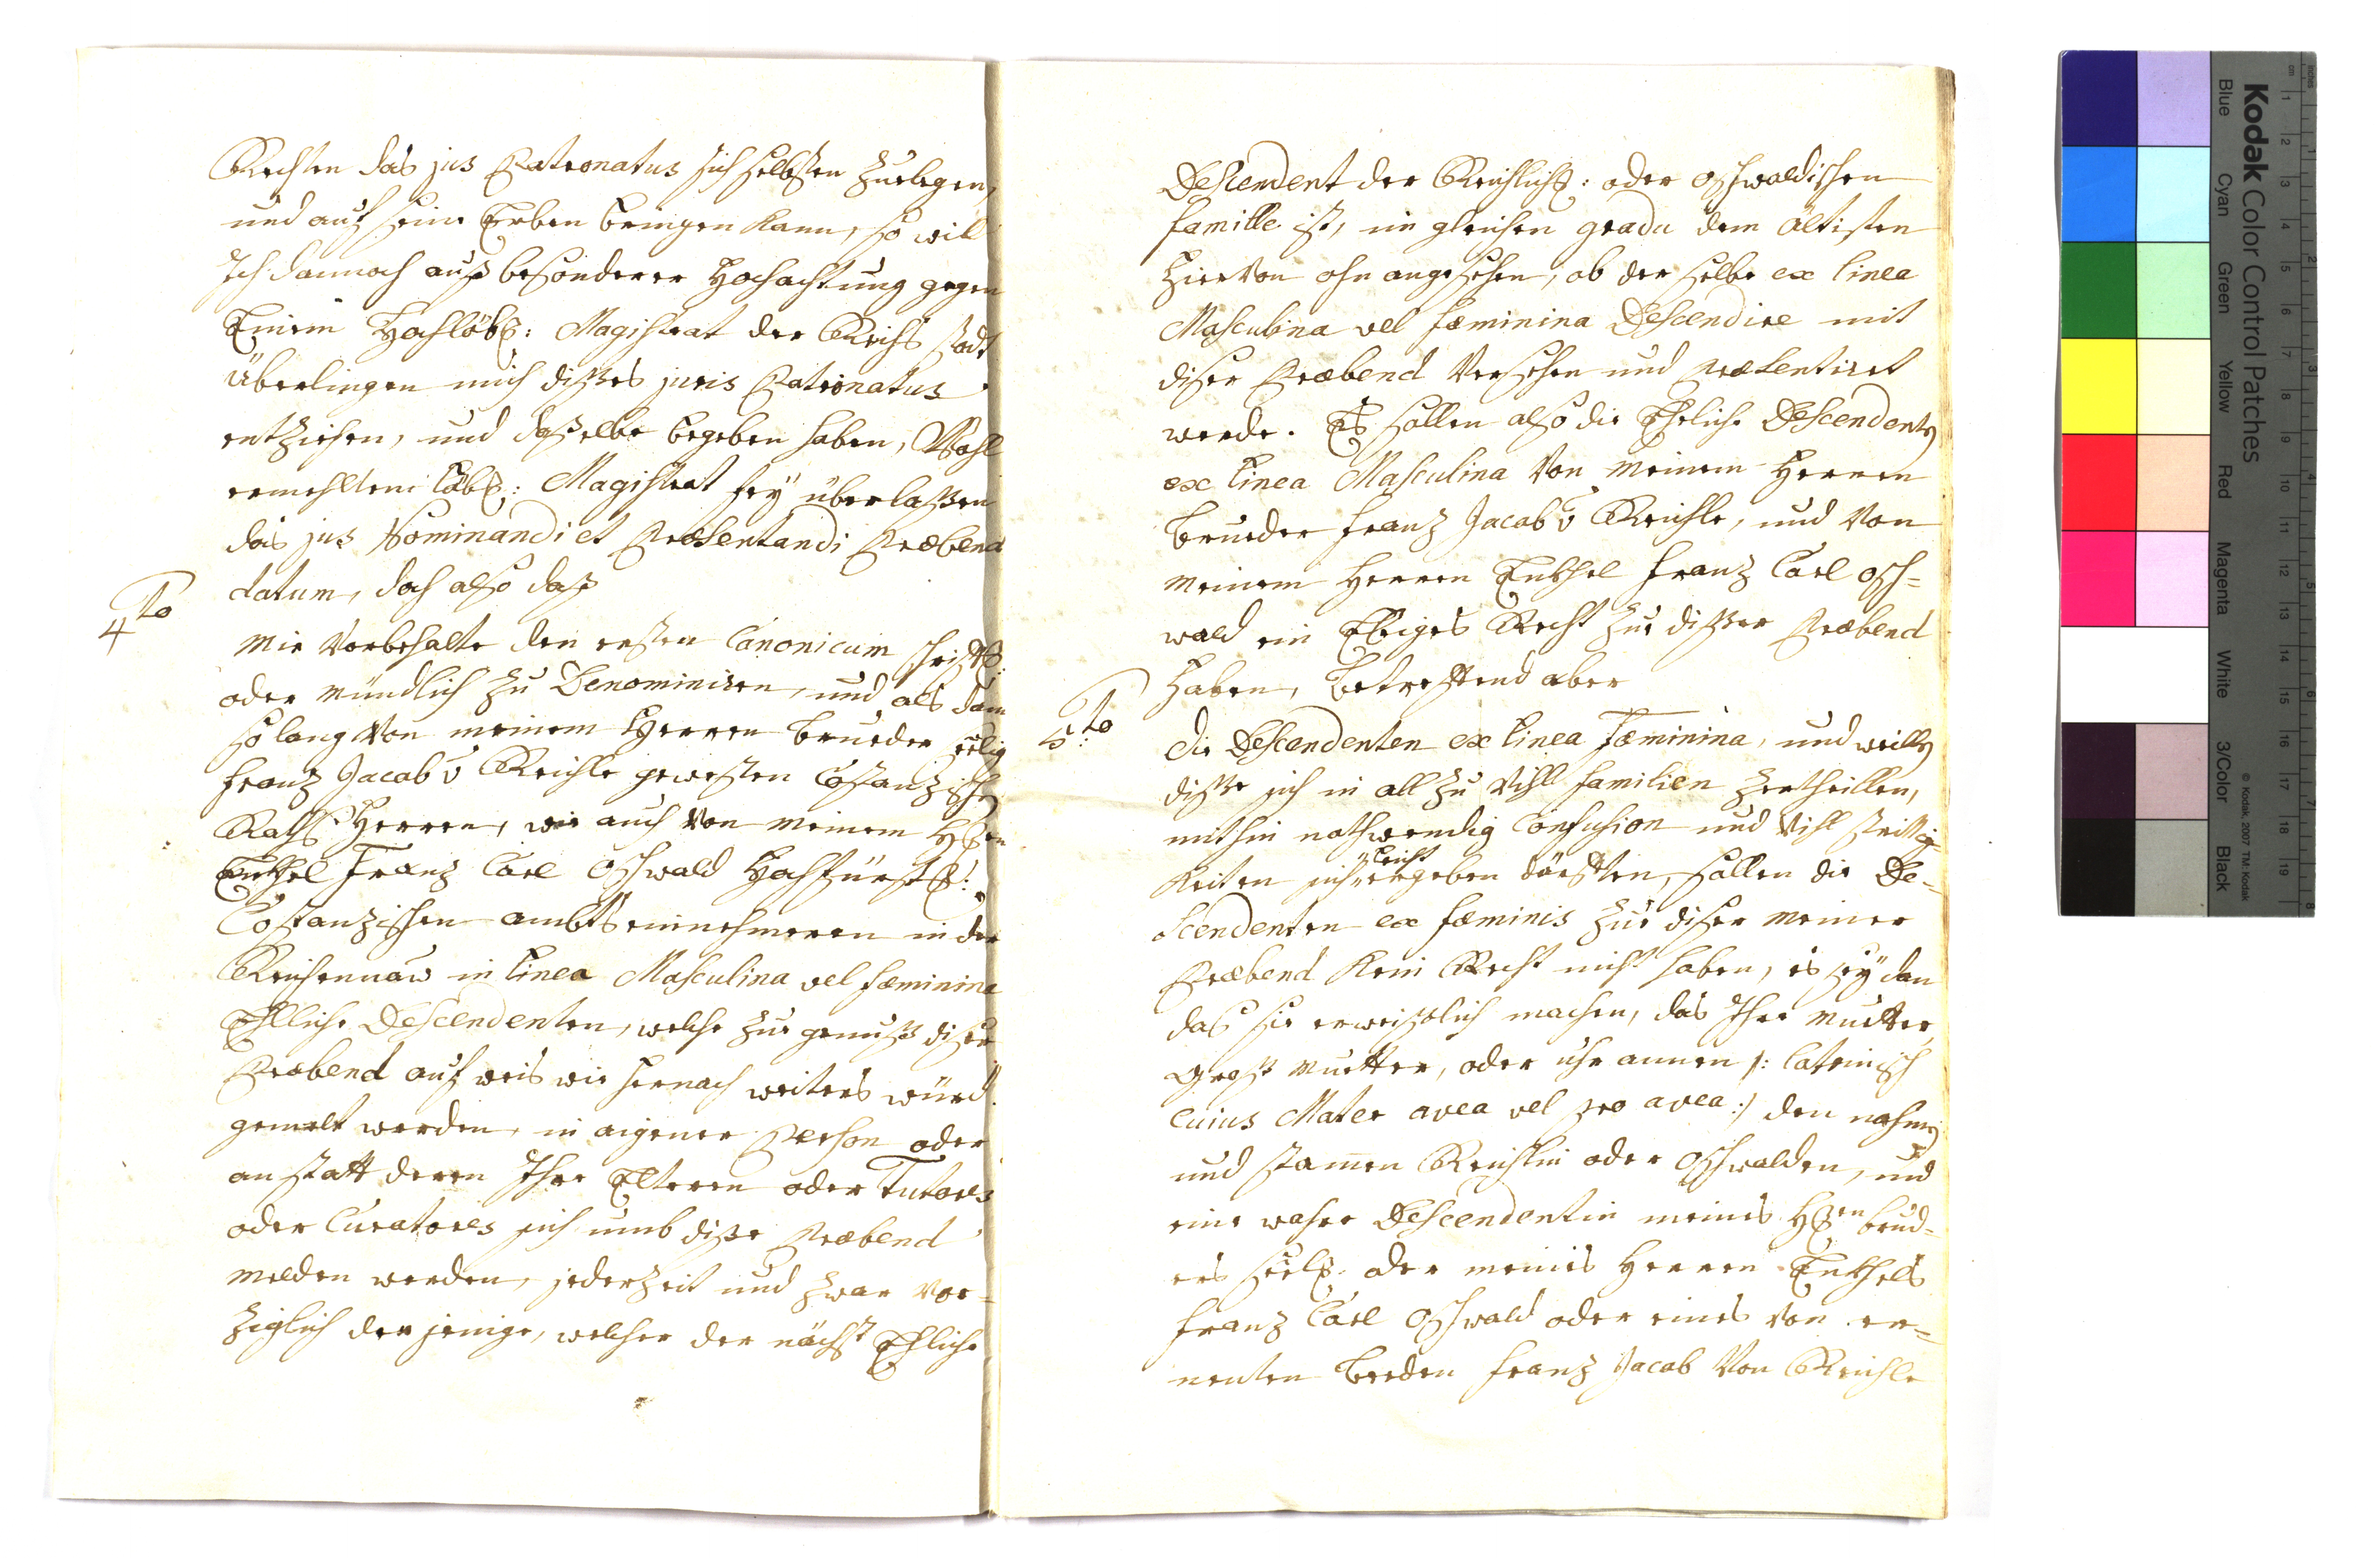 Rechten das jus Patronatus sich selbsten zuelegen,
und auf seine Erben bringen kann, so will
Ich dannoch auß besonderer Hochachtung gegen
Einem Hochlöbl: Magistrat der Reichs statt
Überlingen mich dißes juris Patronatus
entziehen, und daßelbe begeben haben, Wohl
ermelltem Löbl: Magistrat frey überlaßen
das jus Nominandi et Præsentandi Præben
datum, doch also daß
4to
Mir Vorbehalte den ersten Canonicum schriftl:
oder mündlich zu Denominiren, und als dan
so lang Von meinem Herren brueder seelig
Franz Jacob v Reichle gewesten Costanzischen
Raths Herren, wie auch Von meinem Hren
Enkhel Franz Carl Oschwald Hochfürstl:
Costanzischen ambts einnehmeren in der
Reichenaw in linea Masculina vel fæminina
Ehlliche Descendenten, welche zur genuß diser
Præbend auf weis wie hernach weiters würd
gemelt werden, in aigener Person oder
anstatt deren Ihre Elteren oder Tutores
oder Curatores sich umb diße Præbend
melden werden, jederzeit und zwar vor=
ziglich der jenige, welcher der nächst Ehliche
Descendent der Reichlisch: oder Oschwaldischen
familie ist, im gleichen gradu dem ältisten
hiervon ohn angesehen, ob der selbe ex linea
Masculina vel fæminina Descendire mit
diser Præbend Versehen und præsentiret
werde. Es sollen also die Ehliche Descendenten
ex linea Masculina Von meinem Herren
brueder Franz Jacob v Reichle, und Von
meinem Herren Enkhel Franz Carl Osch=
wald ein Ewiges Recht zue dißer Præbend
haben, Betreffend aber
5:to
die Descendenten ex linea Fæminina, und weillen
diße sich in all zu Vihl familien zertheillen,
mithin nothwendig Confusion und Vihl strittig=
keiten sich leicht ergeben därfften, sollen die De=
scendenten ex fæminis zue diser meiner
Præbend kein Recht nicht haben, es sey dan
das sie erweißlich machen, das Ihre muetter
groß muetter, oder uhr annen /: lateinisch
cuius Mater avea vel pro avea :/ den nahmen
und stammen Reichlin oder Oschwalden, und
eine wahre Descendentin meines Hren brued=
ers seel: oder meines Herren Enkhels
Franz Carl Oschwald oder eines von er=
nenten beeden Franz Jacob Von Reichle
Kodak Color Control Patches
Blue
Cyan
Green
Yellow
Red
Magenta
White
3/Color
Black
© Kodak, 2007 TM: Kodak
inches
cm
1 2 3 4 5 6 7 8 9 10 11 12 13 14 15 16 17 18 19
1 2 3 4 5 6 7 8